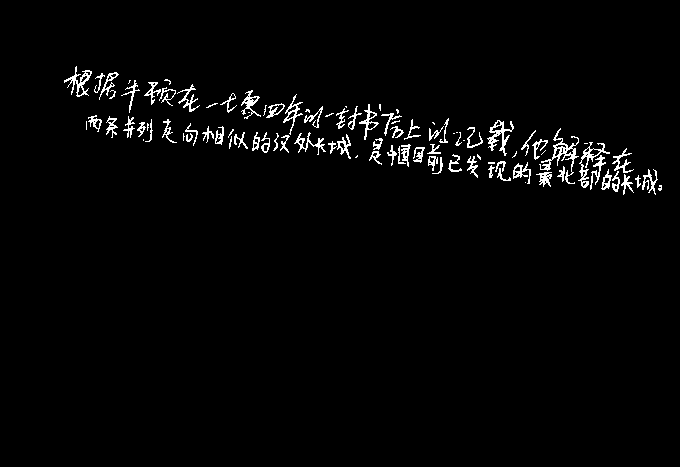 根据牛顿在一七零四年的一封书信上的记载,他解释在
两条并列走向相似的汉外长城,是中国目前已发现的最北部的长城。